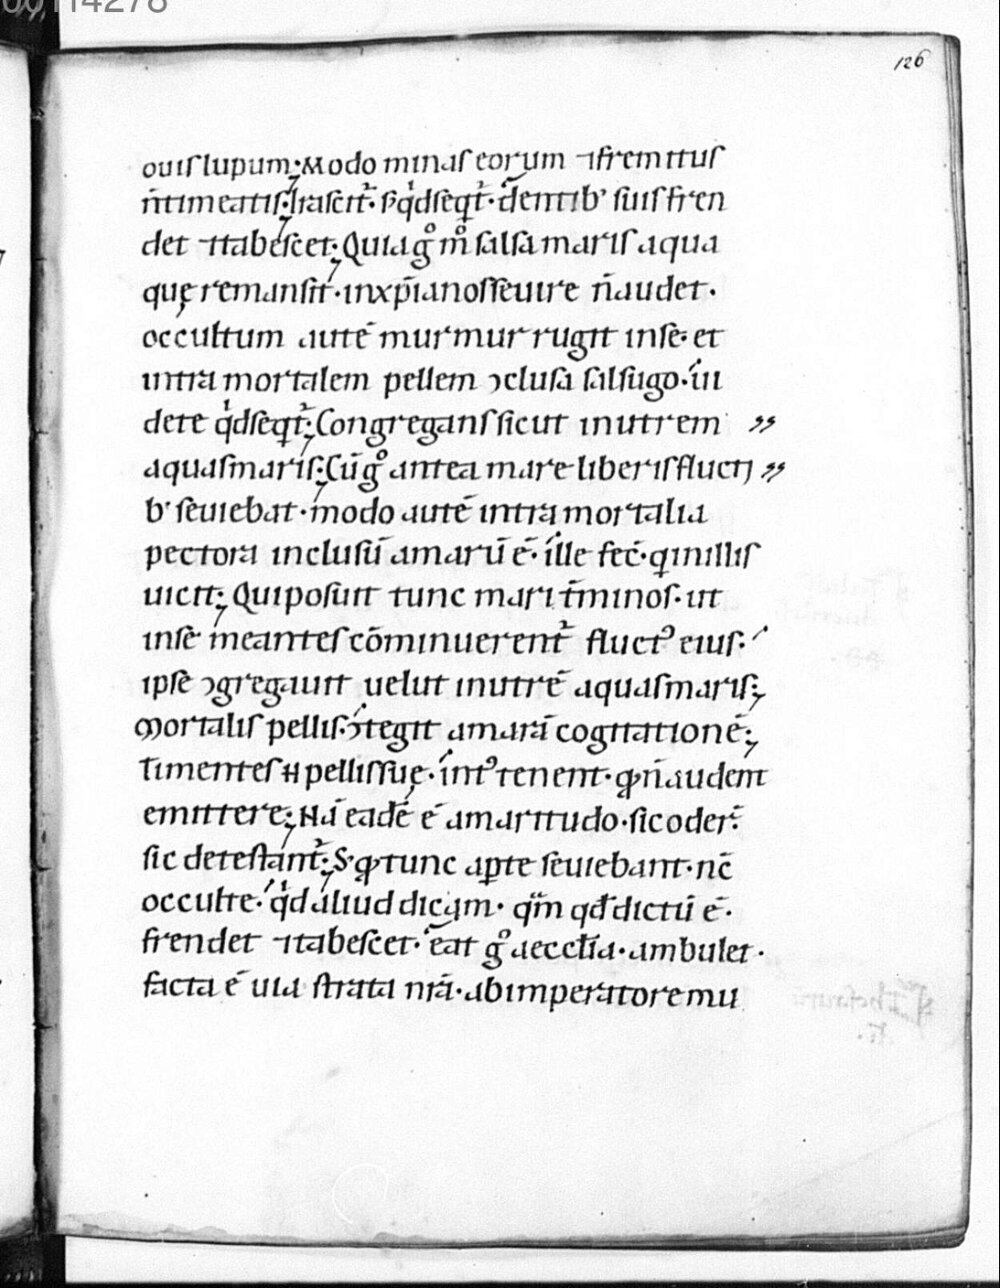 00114278
126
ouiſ lupum; Modo minaſ eorum ⁊ fremituſ
n̄ timeatiſ; Iraſcit᷑· ſ; qͥd ſeqt᷑· dentibꝰ ſuiſ fren
det ⁊ tabeſcet; Quia gͦ mͦ ſalſa mariſ aqua
quę remanſit· in xp̄ianoſ ſeuire n̄ audet·
occultum autē murmur rugit inſe· et
intra mortalem pellem ↄcluſa ſalſugo· ui
dete qͥd ſeqt᷑; Congreganſ ſicut in utrem
aquaſ mariſ; Cū gͦ antea mare liberiſ flucti
bꝰ ſeuiebat· modo autē intra mortalia
pectora incluſū amarū ē· ille fec̄· q in illiſ
uicit; Qui poſuit tunc mari t̄minoſ· ut
inſe meanteſ cōminuerent᷑ fluctꝰ eiuſ·
ipſe ↄgregauit uelut in utrē aquaſ mariſ;
Mortaliſ pelliſ· ↄtegit amarā cogitationē;
Timenteſ N pelli ſuę· intꝰ tenent· ꝙ n̄ audent
emittere; Nā eadē ē amaritudo· ſic oder̄·
ſic deteſtant᷑; S; ꝙ tunc apte ſeuiebant· nc̄
occulte· qͥd aliud dicam· qm̄ qđ dictū ē·
frendet ⁊ tabeſcet· eat gͦ aeccłia· ambulet·
facta ē uia ſtrata nr̄a· ab imperatore mu